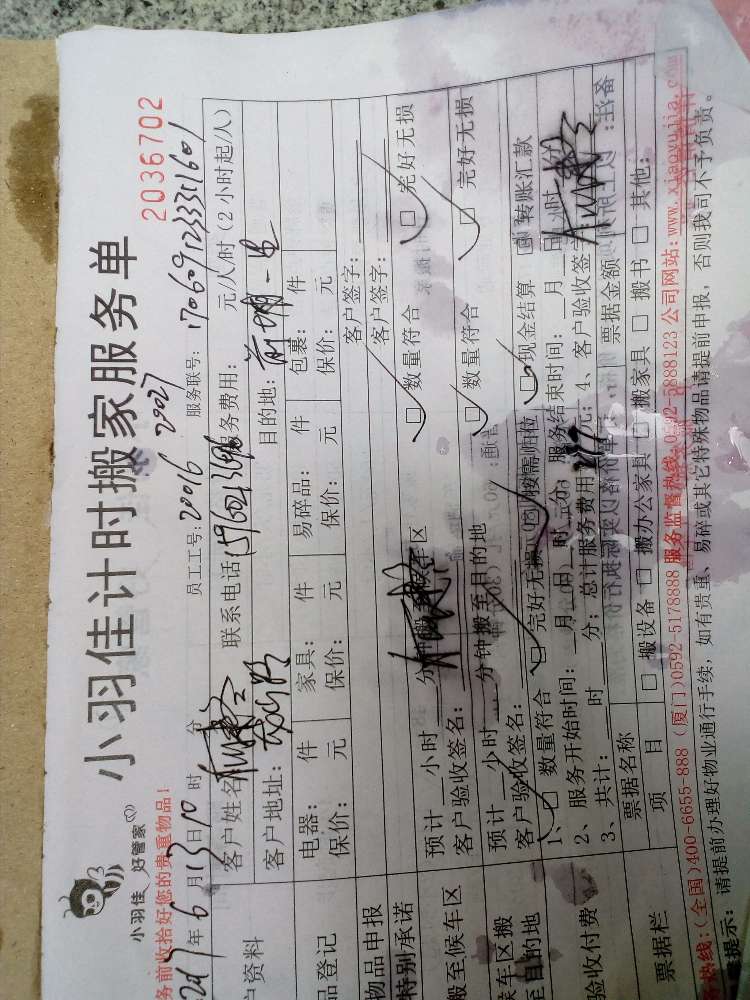 小羽佳计时搬家服务单
2036702
小羽佳 好管家
务前收拾好您的贵重物品！
年6月13日10时 分 员工工号：20016 29027 服务联号：170609123331601
户资料
客户姓名 联系电话 服务费用： 元/人/时（2小时起/人）
客户地址： 目的地：
品登记
电器： 件 家具： 件 易碎品： 件 包裹： 件
保价： 元 保价： 元 保价： 元 保价： 元
物品申报 客户签字：
特别承诺 客户签字：
搬至候车区
预计 小时 分钟搬至候车区 □ 数量符合 □ 完好无损
客户验收签名：
候车区搬
至目的地
预计 小时 分钟搬至目的地 □ 数量符合 □ 完好无损
客户验收签名：
验收付费
1、□ 数量符合 □ 完好无损 □ 按需归位 □ 现金结算 □ 转账汇款
2、服务开始时间： 月 日 时 分 服务结束时间： 月 日 时 分
3、共计： 时 分；总计服务费用： 元；4、客户验收签字：
票据栏
票据名称 票据金额 备注：
项 目 □ 搬设备 □ 搬办公家具 □ 搬家具 □ 搬书 □ 其他：
热线：(全国)400-6655-888 (厦门)0592-5178888 服务监督热线：0592-5888123 公司网站：www.xiaoyujia.com
提示： 请提前办理好物业通行手续，如有贵重、易碎或其它特殊物品请提前申报，否则我司不予负责。